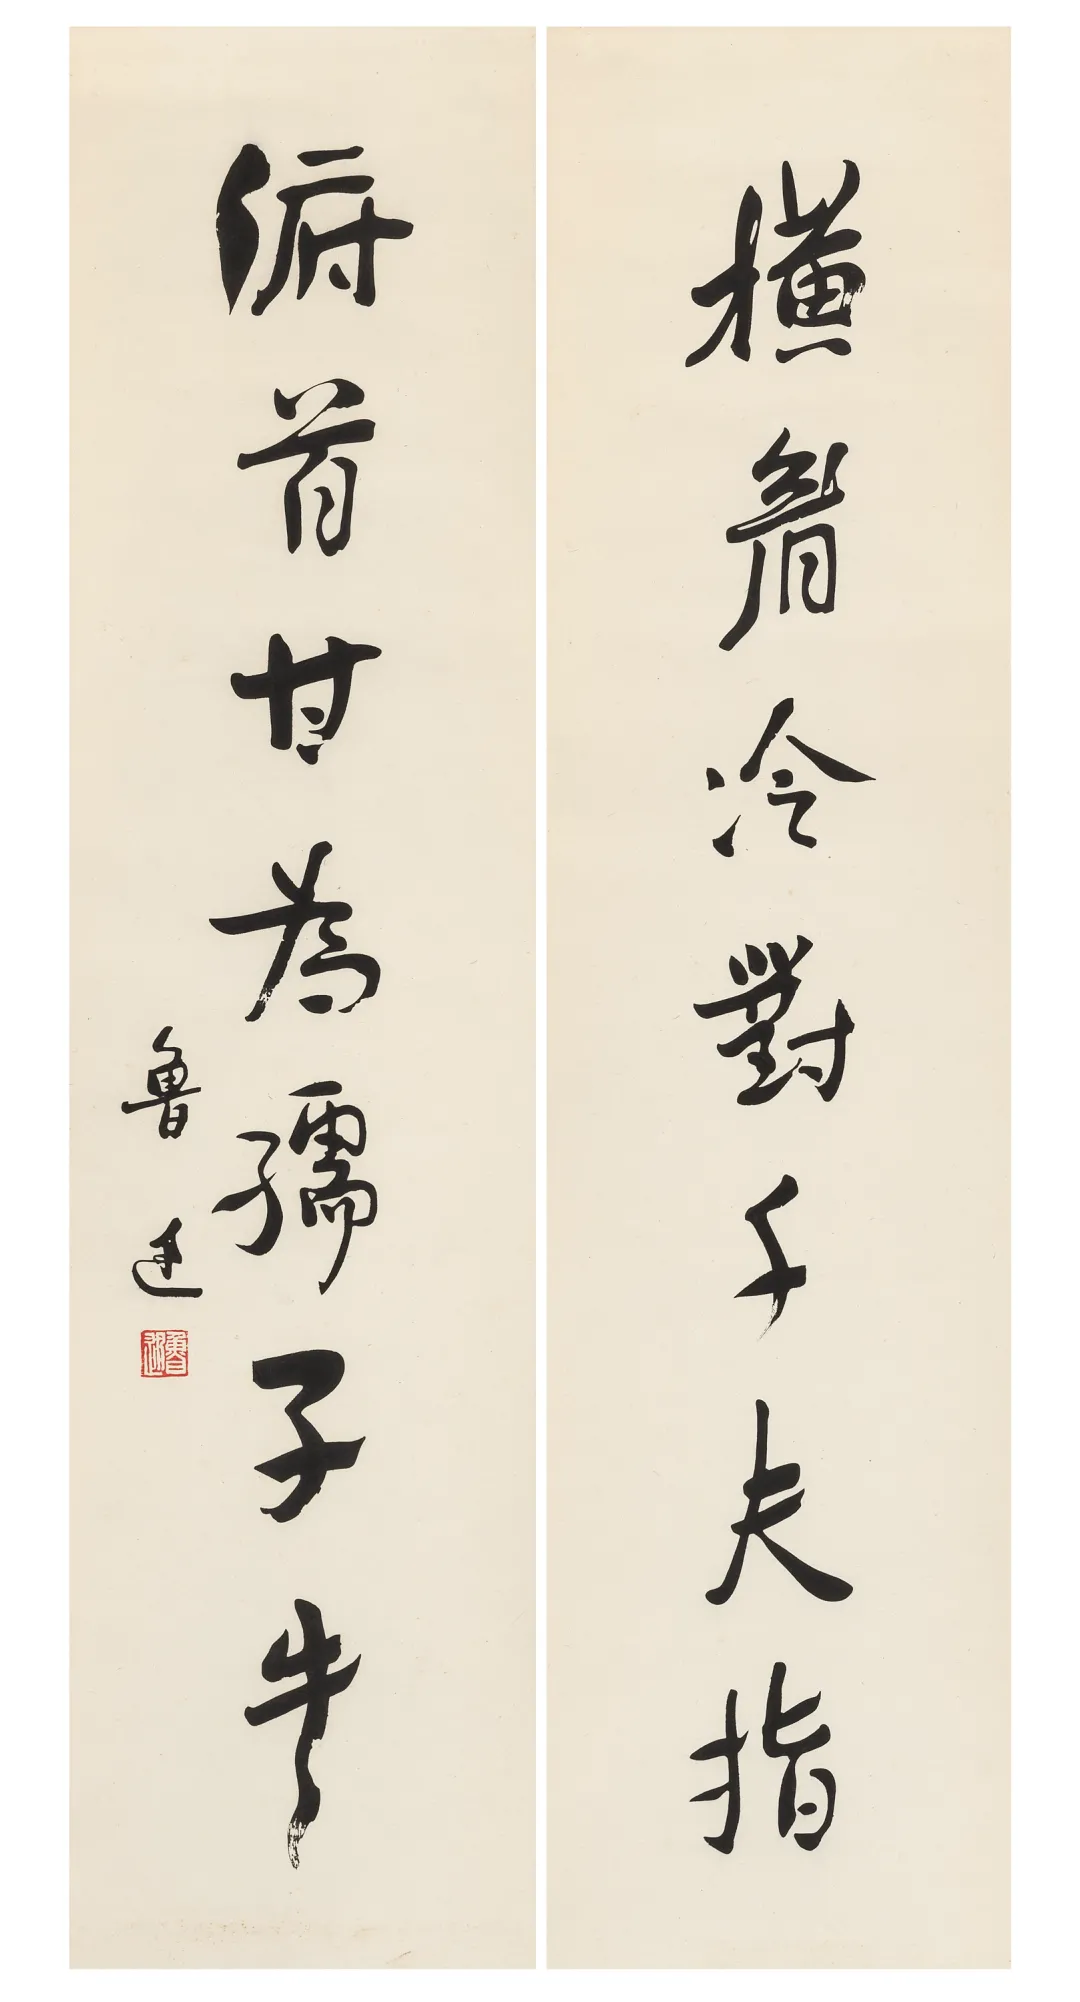 橫眉冷對千夫指
俯首甘為孺子牛
魯迅
魯迅